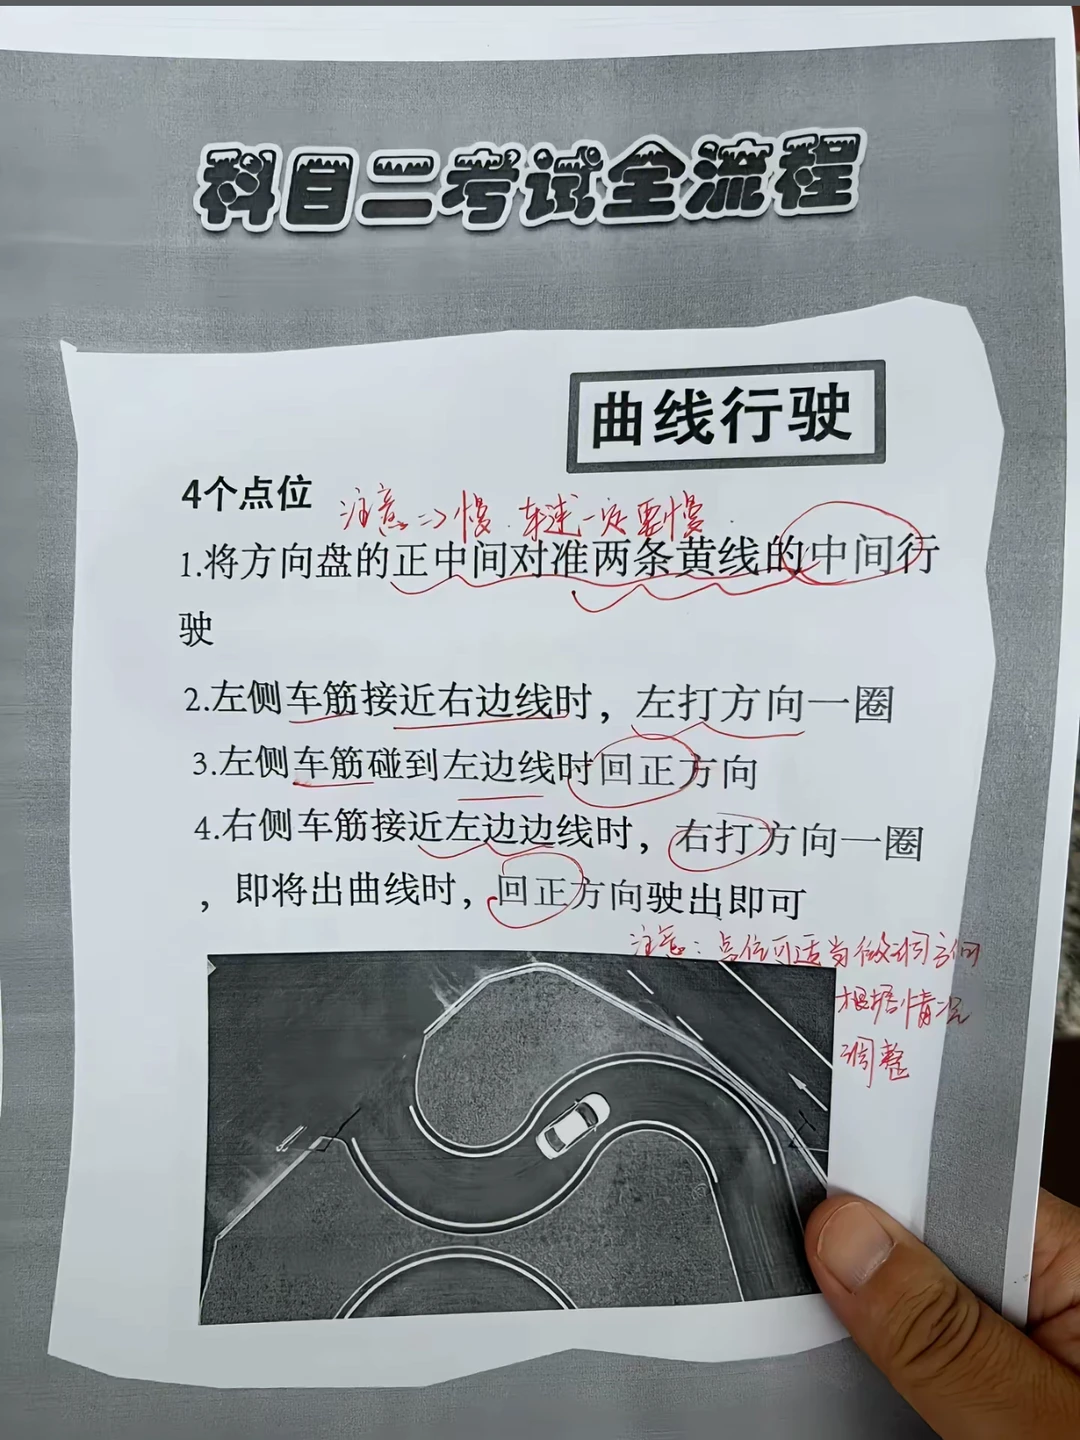 科目二考试全流程
曲线行驶
4个点位
注意=>慢 车速一定要慢
1.将方向盘的正中间对准两条黄线的中间行
驶
2.左侧车筋接近右边线时，左打方向一圈
3.左侧车筋碰到左边线时回正方向
4.右侧车筋接近左边边线时，右打方向一圈
，即将出曲线时，回正方向驶出即可
注意：点位可适当微调方向
根据情况
调整